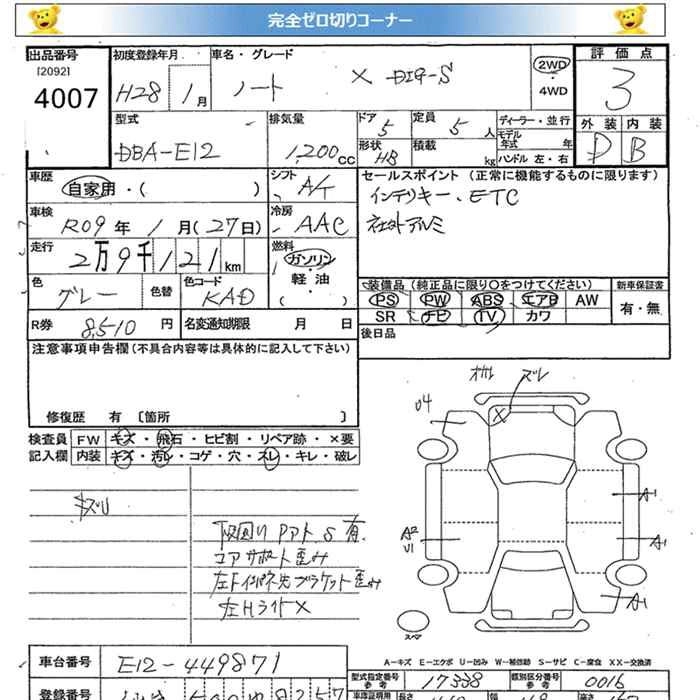 完全ゼロ切りコーナー
出品番号 初度登録年月 車名・グレード 評価点
[2092] 4007 H28 1月 ノート X DIG-S 2WD・4WD 3
型式 排気量 ドア 定員 ディーラー・並行 外装 内装
DBA-E12 1,200cc 5 5人 モデル年式 年 D B
形状 HB 積載 kg ハンドル 左・右
車歴 自家用・( ) シフト A/T セールスポイント(正常に機能するものに限ります)
インテリキー、ETC
車検 R09年1月(27日) 冷房 AAC 社外アルミ
走行 2万9千121km 燃料 ガソリン・軽油・( )
色 グレー 色替 色コード KAD
装備品(純正品に限り○をつけてください) 新車保証書
PS PW ABS エアB AW 有・無
SR ナビ TV カワ
R券 8,510円 名変通知期限 月 日 後日品
注意事項申告欄(不具合内容等は具体的に記入して下さい)
修復歴 有 [箇所 ]
検査員 FW キズ・飛石・ヒビ割・リペア跡・×要
記入欄 内装 キズ・汚レ・コゲ・穴・スレ・キレ・破レ
ズレ
U4 X
A1
A2 U1
A1
A1
コアサポート歪み
左Hライト X
スペア
A-キズ E-エクボ U-凹み W-補修跡 S-サビ C-腐食 XX-交換済
車台番号 E12-449871 型式指定番号 参考 17338 類別区分番号 参考 0016
登録番号 車庫証明用 長さ 幅 高さ